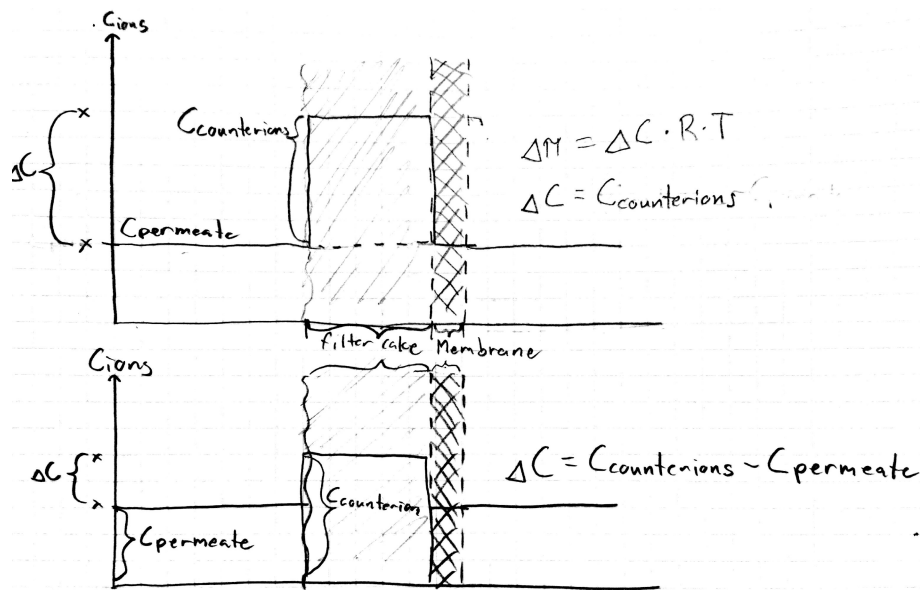 Cions
Ccounterions
ΔC
Cpermeate
ΔΠ = ΔC · R · T
ΔC = Ccounterions
filter cake Membrane
Cions
ΔC
Ccounterion
Cpermeate
ΔC = Ccounterions - Cpermeate